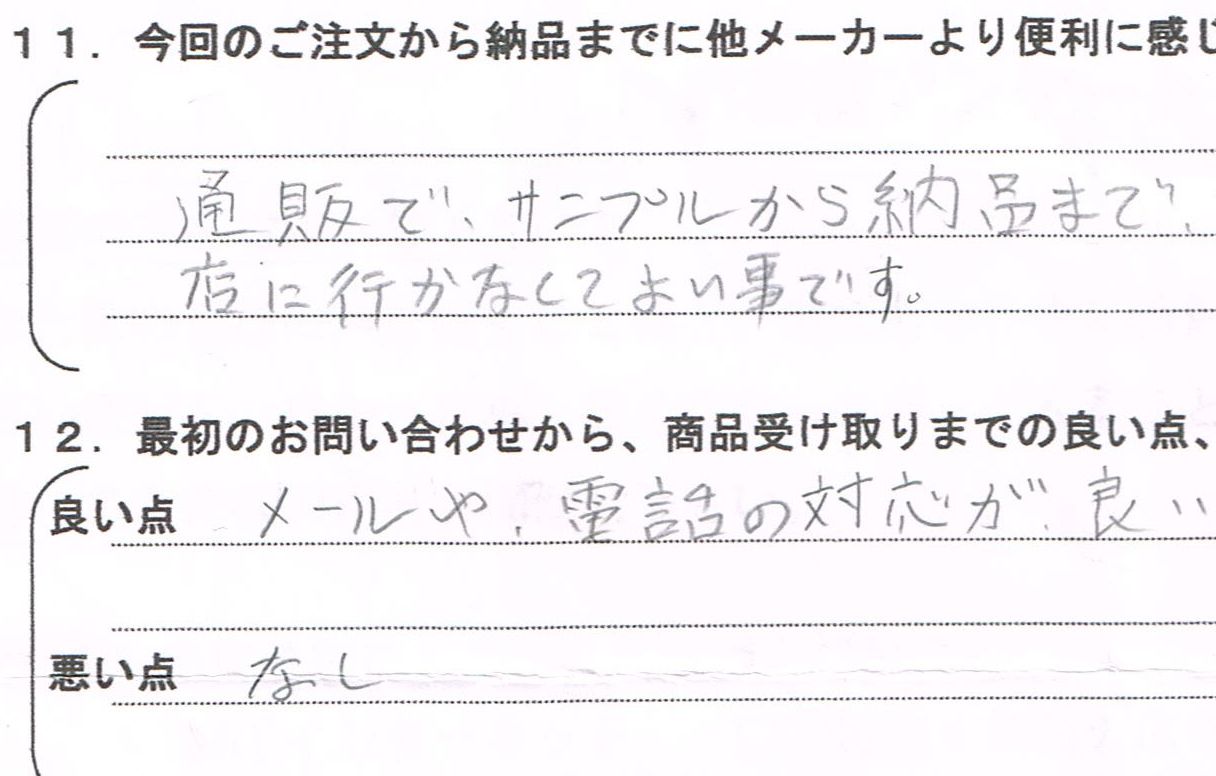 １１．今回のご注文から納品までに他メーカーより便利に感じ
通販で、サンプルから納品まで、
店に行かなくてよい事です。
１２．最初のお問い合わせから、商品受け取りまでの良い点、
良い点 メールや、電話の対応が、良い
悪い点 なし